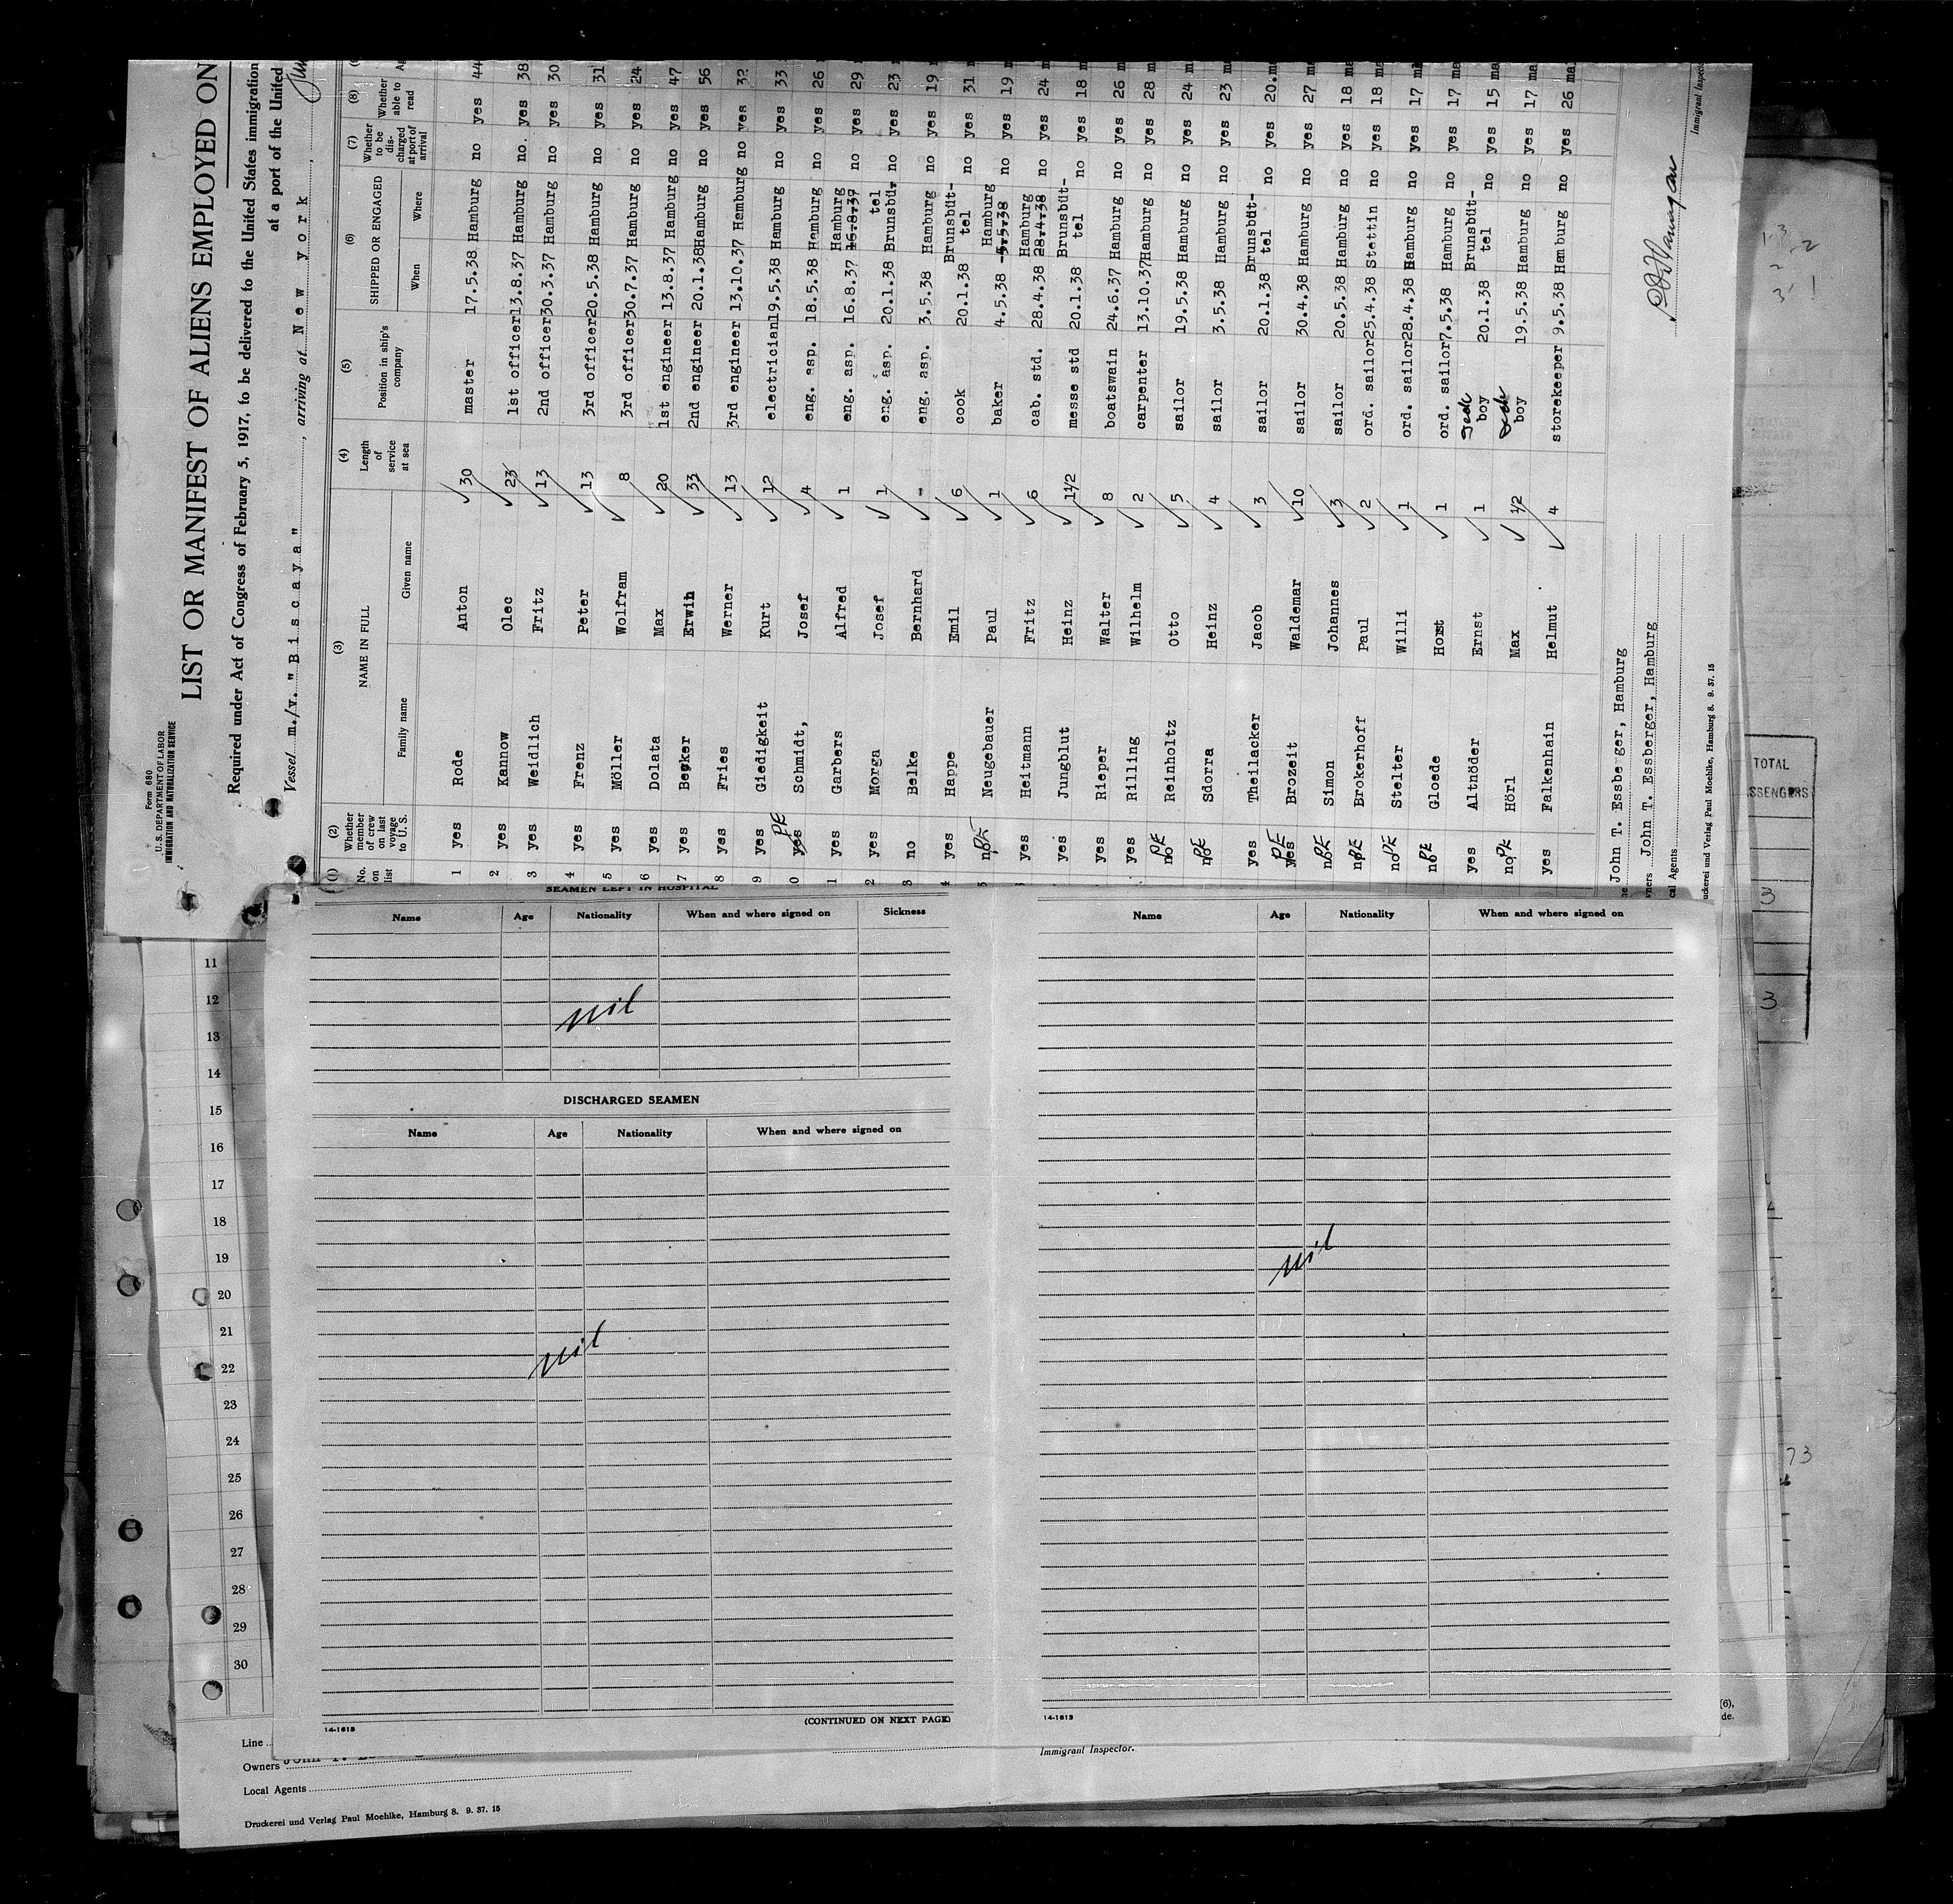 Form 680
U. S. DEPARTMENT OF LABOR
IMMIGRATION AND NATURALIZATION SERVICE
LIST OR MANIFEST OF ALIENS EMPLOYED ON
Required under Act of Congress of February 5, 1917, to be delivered to the United States immigration
at a port of the United
Vessel m./v. "Biscaya", arriving at New york,
(1) No. on list (2) Whether member of crew on last voyage to U. S. (3) NAME IN FULL Family name Given name (4) Length of service at sea (5) Position in ship's company (6) SHIPPED OR ENGAGED When Where (7) Whether to be discharged at port of arrival (8) Whether able to read
1 yes Rode Anton 30 master 17.5.38 Hamburg no yes 44
2 yes Kannow Olec 23 1st officer 13.8.37 Hamburg no. yes 38
3 yes Weidlich Fritz 13 2nd officer 30.3.37 Hamburg no yes 30
4 yes Frenz Peter 13 3rd officer 20.5.38 Hamburg no yes 31
5 yes Möller Wolfram 8 3rd officer 30.7.37 Hamburg no yes 24
6 yes Dolata Max 20 1st engineer 13.8.37 Hamburg no yes 47
7 yes Becker Erwin 33 2nd engineer 20.1.38 Hamburg no yes 56
8 yes Fries Werner 13 3rd engineer 13.10.37 Hemburg no yes 32
9 yes Giedigkeit Kurt 12 electrician 19.5.38 Hamburg no yes 33
0 yes PE Schmidt, Josef 4 eng. asp. 18.5.38 Hamburg no yes 26
1 yes Garbers Alfred 1 eng. asp. 16.8.37 Hamburg 16.8.37 no yes 29
2 yes Morga Josef 1 eng. asp. 20.1.38 Brunsbüttel no yes 23
3 no Belke Bernhard - eng. asp. 3.5.38 Hamburg no yes 19
4 yes Happe Emil 6 cook 20.1.38 Brunsbüt-tel no yes 31
5 no PE Neugebauer Paul 1 baker 4.5.38 Hamburg 5.5.38 no yes 19
yes Heitmann Fritz 6 cab. std. 28.4.38 Hamburg 28.4.38 no yes 24
yes Jungblut Heinz 1 1/2 messe std 20.1.38 Brunsbüt-tel no yes 18
yes Rieper Walter 8 boatswain 24.6.37 Hamburg no yes 26
yes Rilling Wilhelm 2 carpenter 13.10.37 Hamburg no yes 28
no PE Reinholtz Otto 5 sailor 19.5.38 Hamburg no yes 24
no PE Sdorra Heinz 4 sailor 3.5.38 Hamburg no yes 23
yes Theilacker Jacob 3 sailor 20.1.38 Brunsbüt-tel no yes 20
yes PE Brozeit Waldemar 10 sailor 30.4.38 Hamburg no yes 27
no PE Simon Johannes 3 sailor 20.5.38 Hamburg no yes 18
no PE Brokerhoff Paul 2 ord. sailor 25.4.38 Stettin no yes 18
no PE Stelter Willi 1 ord. sailor 28.4.38 Hamburg no yes 17
no PE Gloede Horst 1 ord. sailor 7.5.38 Hamburg no yes 17
yes Altnöder Ernst 1 deck boy 20.1.38 Brunsbüt-tel no yes 15
no PE Hörl Max 1/2 deck boy 19.5.38 Hamburg no yes 17
yes Falkenhain Helmut 4 storekeeper 9.5.38 Hamburg no yes 26
John T. Essberger, Hamburg
John T. Essberger, Hamburg
Immigrant Inspec
cal Agents
uckerei und Verlag Paul Moehlke, Hamburg 8. 9. 37. 15
TOTAL
SSENGERS
3
3
73
SEAMEN LEFT IN HOSPITAL
Name Age Nationality When and where signed on Sickness
nil
DISCHARGED SEAMEN
Name Age Nationality When and where signed on
nil
14-1613 (CONTINUED ON NEXT PAGE)
Name Age Nationality When and where signed on
nil
14-1613
11
12
13
14
15
16
17
18
19
20
21
22
23
24
25
26
27
28
29
30
(6),
de.
Line
Owners John T.
Local Agents
Immigrant Inspector.
Druckerei und Verlag Paul Moehlke, Hamburg 8. 9. 37. 15